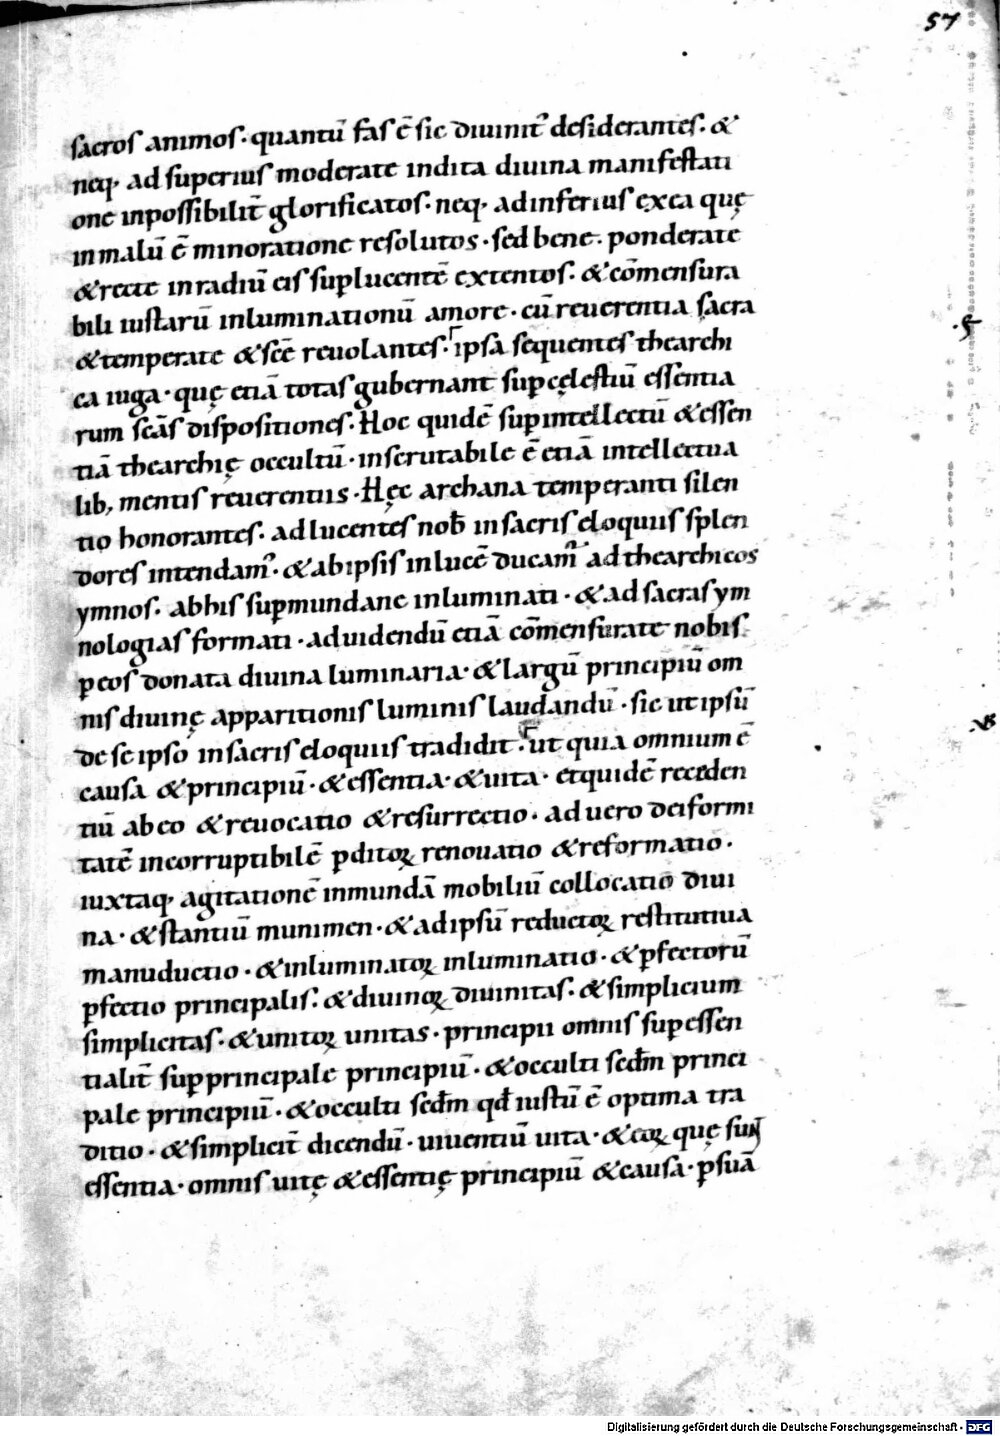 57
sacros animos· quantū fas ē sic diuinit᷒ desiderantes· &
neq· ad superius moderate indita diuina manifestati
one inpossibilit̄ glorificatos· neq· adinferius exea quę
inmalū ē minoratione resolutos· sed bene· ponderate
& recte inradiū eis suplucentē extentos· & cōmensura
bili iustarū inluminationū amore· cū reuerentia sacra
& temperate & scē reuolantes· ipsa sequentes thearchi
ca iuga· quę etiā totas gubernant supcęlestiū essentia
rum scās dispositiones· Hoc quidē supintellectū & essen
tiā thearchię occultū· inscrutabile ē etiā intellectua
lib; mentis reuerentiis· Hęc archana temperanti silen
tio honorantes· adlucentes nob̄ insacris eloquiis splen
dores intendam᷒· & abipsis inlucē ducam᷒ ad thearchicos
ymnos· abhis supmundane inluminati· & ad sacras ym
nologias formati· aduidendū etiā cōmensurate nobis
peos donata diuina luminaria· & largū principiū om
nis diuinę apparitionis luminis laudandū· sic ut ipsū
de se ipso insacris eloquiis tradidit· ut quia omnium ē
causa & principiū· & essentia· & uita· etquidē receden
tiū abeo & reuocatio & resurrectio· ad uero deiformi
tatē incorruptibilē pditoꝝ renouatio & reformatio·
iuxtaq· agitationē inmundā mobiliū collocatio diui
na· & stantiū munimen· & adipsū reductoꝝ restitutiua
manuductio· & inluminatoꝝ inluminatio· & pfectorū
pfectio principalis· & diuinoꝝ diuinitas· & simplicium
simplicitas· & unitoꝝ unitas· principii omnis supessen
tialit̄ supprincipale principiū· & occulti sedm̄ princi
pale principiū· & occulti sedm̄ qd̄ iustū ē optima tra
ditio· & simplicit̄ dicendū· uiuentiū uita· & eoꝝ quę sun
essentia· omnis uitę & essentię principiū & causa· psuā
Digitalisierung gefördert durch die Deutsche Forschungsgemeinschaft · DFG